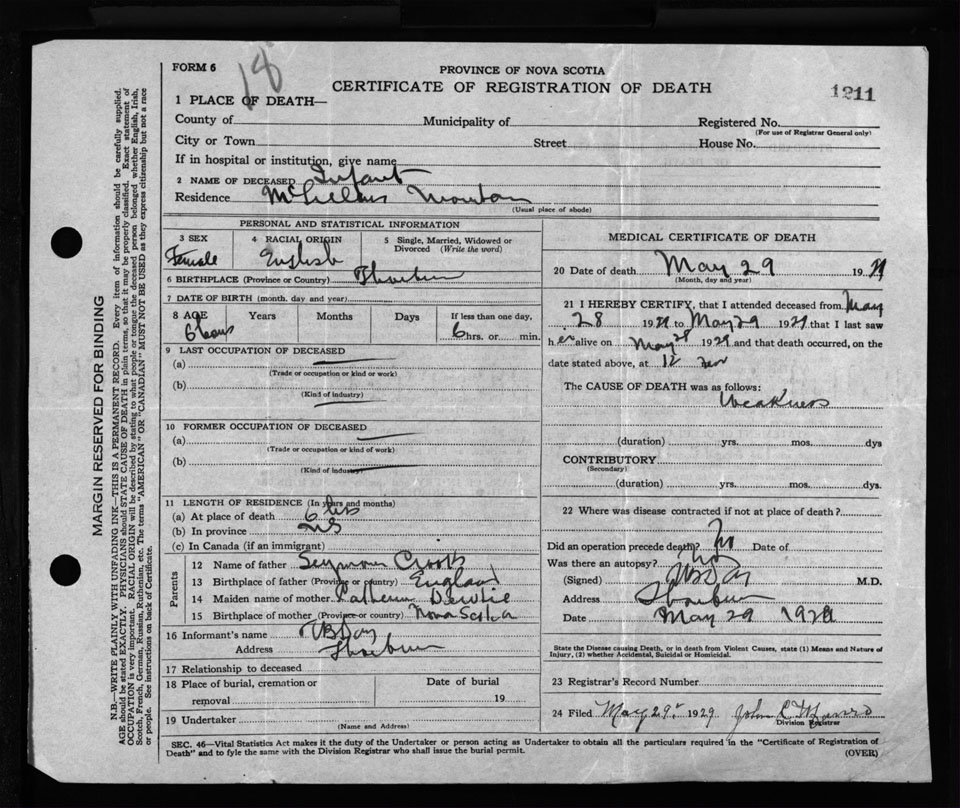 18
FORM 6
PROVINCE OF NOVA SCOTIA
CERTIFICATE OF REGISTRATION OF DEATH
1211
1 PLACE OF DEATH—
County of Municipality of Registered No.
(For use of Registrar General only)
City or Town Street House No.
If in hospital or institution, give name
2 NAME OF DECEASED Infant
Residence McLellans Mountain
(Usual place of abode)
PERSONAL AND STATISTICAL INFORMATION
3 SEX Female
4 RACIAL ORIGIN English
5 Single, Married, Widowed or Divorced (Write the word)
6 BIRTHPLACE (Province or Country) Thorburn
7 DATE OF BIRTH (month, day and year)
8 AGE Years Months Days If less than one day,
6 hours 6 hrs. or min.
9 LAST OCCUPATION OF DECEASED
(a)
(Trade or occupation or kind or work)
(b)
(Kind of industry)
10 FORMER OCCUPATION OF DECEASED
(a)
(Trade or occupation or kind of work)
(b)
(Kind of industry)
11 LENGTH OF RESIDENCE (In years and months)
(a) At place of death 6 hrs
(b) In province NS
(c) In Canada (if an immigrant)
Parents
12 Name of father Seymour
13 Birthplace of father (Province or country) England
14 Maiden name of mother
15 Birthplace of mother (Province or country) Nova Scotia
16 Informant's name Day
Address Thorburn
17 Relationship to deceased
18 Place of burial, cremation or removal Date of burial 19
19 Undertaker
(Name and Address)
MEDICAL CERTIFICATE OF DEATH
20 Date of death May 29 1929
(Month, day and year)
21 I HEREBY CERTIFY, that I attended deceased from May
28 1929 to May 29 1929 that I last saw
her alive on May 28 1929 and that death occurred, on the
date stated above, at 12
The CAUSE OF DEATH was as follows:
Weakness
(duration) yrs. mos. dys
CONTRIBUTORY
(Secondary)
(duration) yrs. mos. dys
22 Where was disease contracted if not at place of death?
Did an operation precede death? No Date of
Was there an autopsy? No
(Signed) Day M.D.
Address Thorburn
Date May 29 1929
State the Disease causing Death, or in death from Violent Causes, state (1) Means and Nature of
Injury, (2) whether Accidental, Suicidal or Homicidal.
23 Registrar's Record Number
24 Filed May 29th 1929 John
Division Registrar
SEC. 46—Vital Statistics Act makes it the duty of the Undertaker or person acting as Undertaker to obtain all the particulars required in the "Certificate of Registration of
Death" and to fyle the same with the Division Registrar who shall issue the burial permit. (OVER)
MARGIN RESERVED FOR BINDING
N.B.—WRITE PLAINLY WITH UNFADING INK—THIS IS A PERMANENT RECORD. Every item of information should be carefully supplied.
AGE should be stated EXACTLY. PHYSICIANS should STATE CAUSE OF DEATH in plain terms, so that it may be properly classified. Exact statement of
OCCUPATION is very important. RACIAL ORIGIN will be described by stating to what people or tongue the deceased person belonged whether English, Irish,
Scotch, French, German, Russian, Ruthenian, etc. The terms "AMERICAN" OR "CANADIAN" MUST NOT BE USED as they express citizenship but not a race
or people. See instructions on back of Certificate.